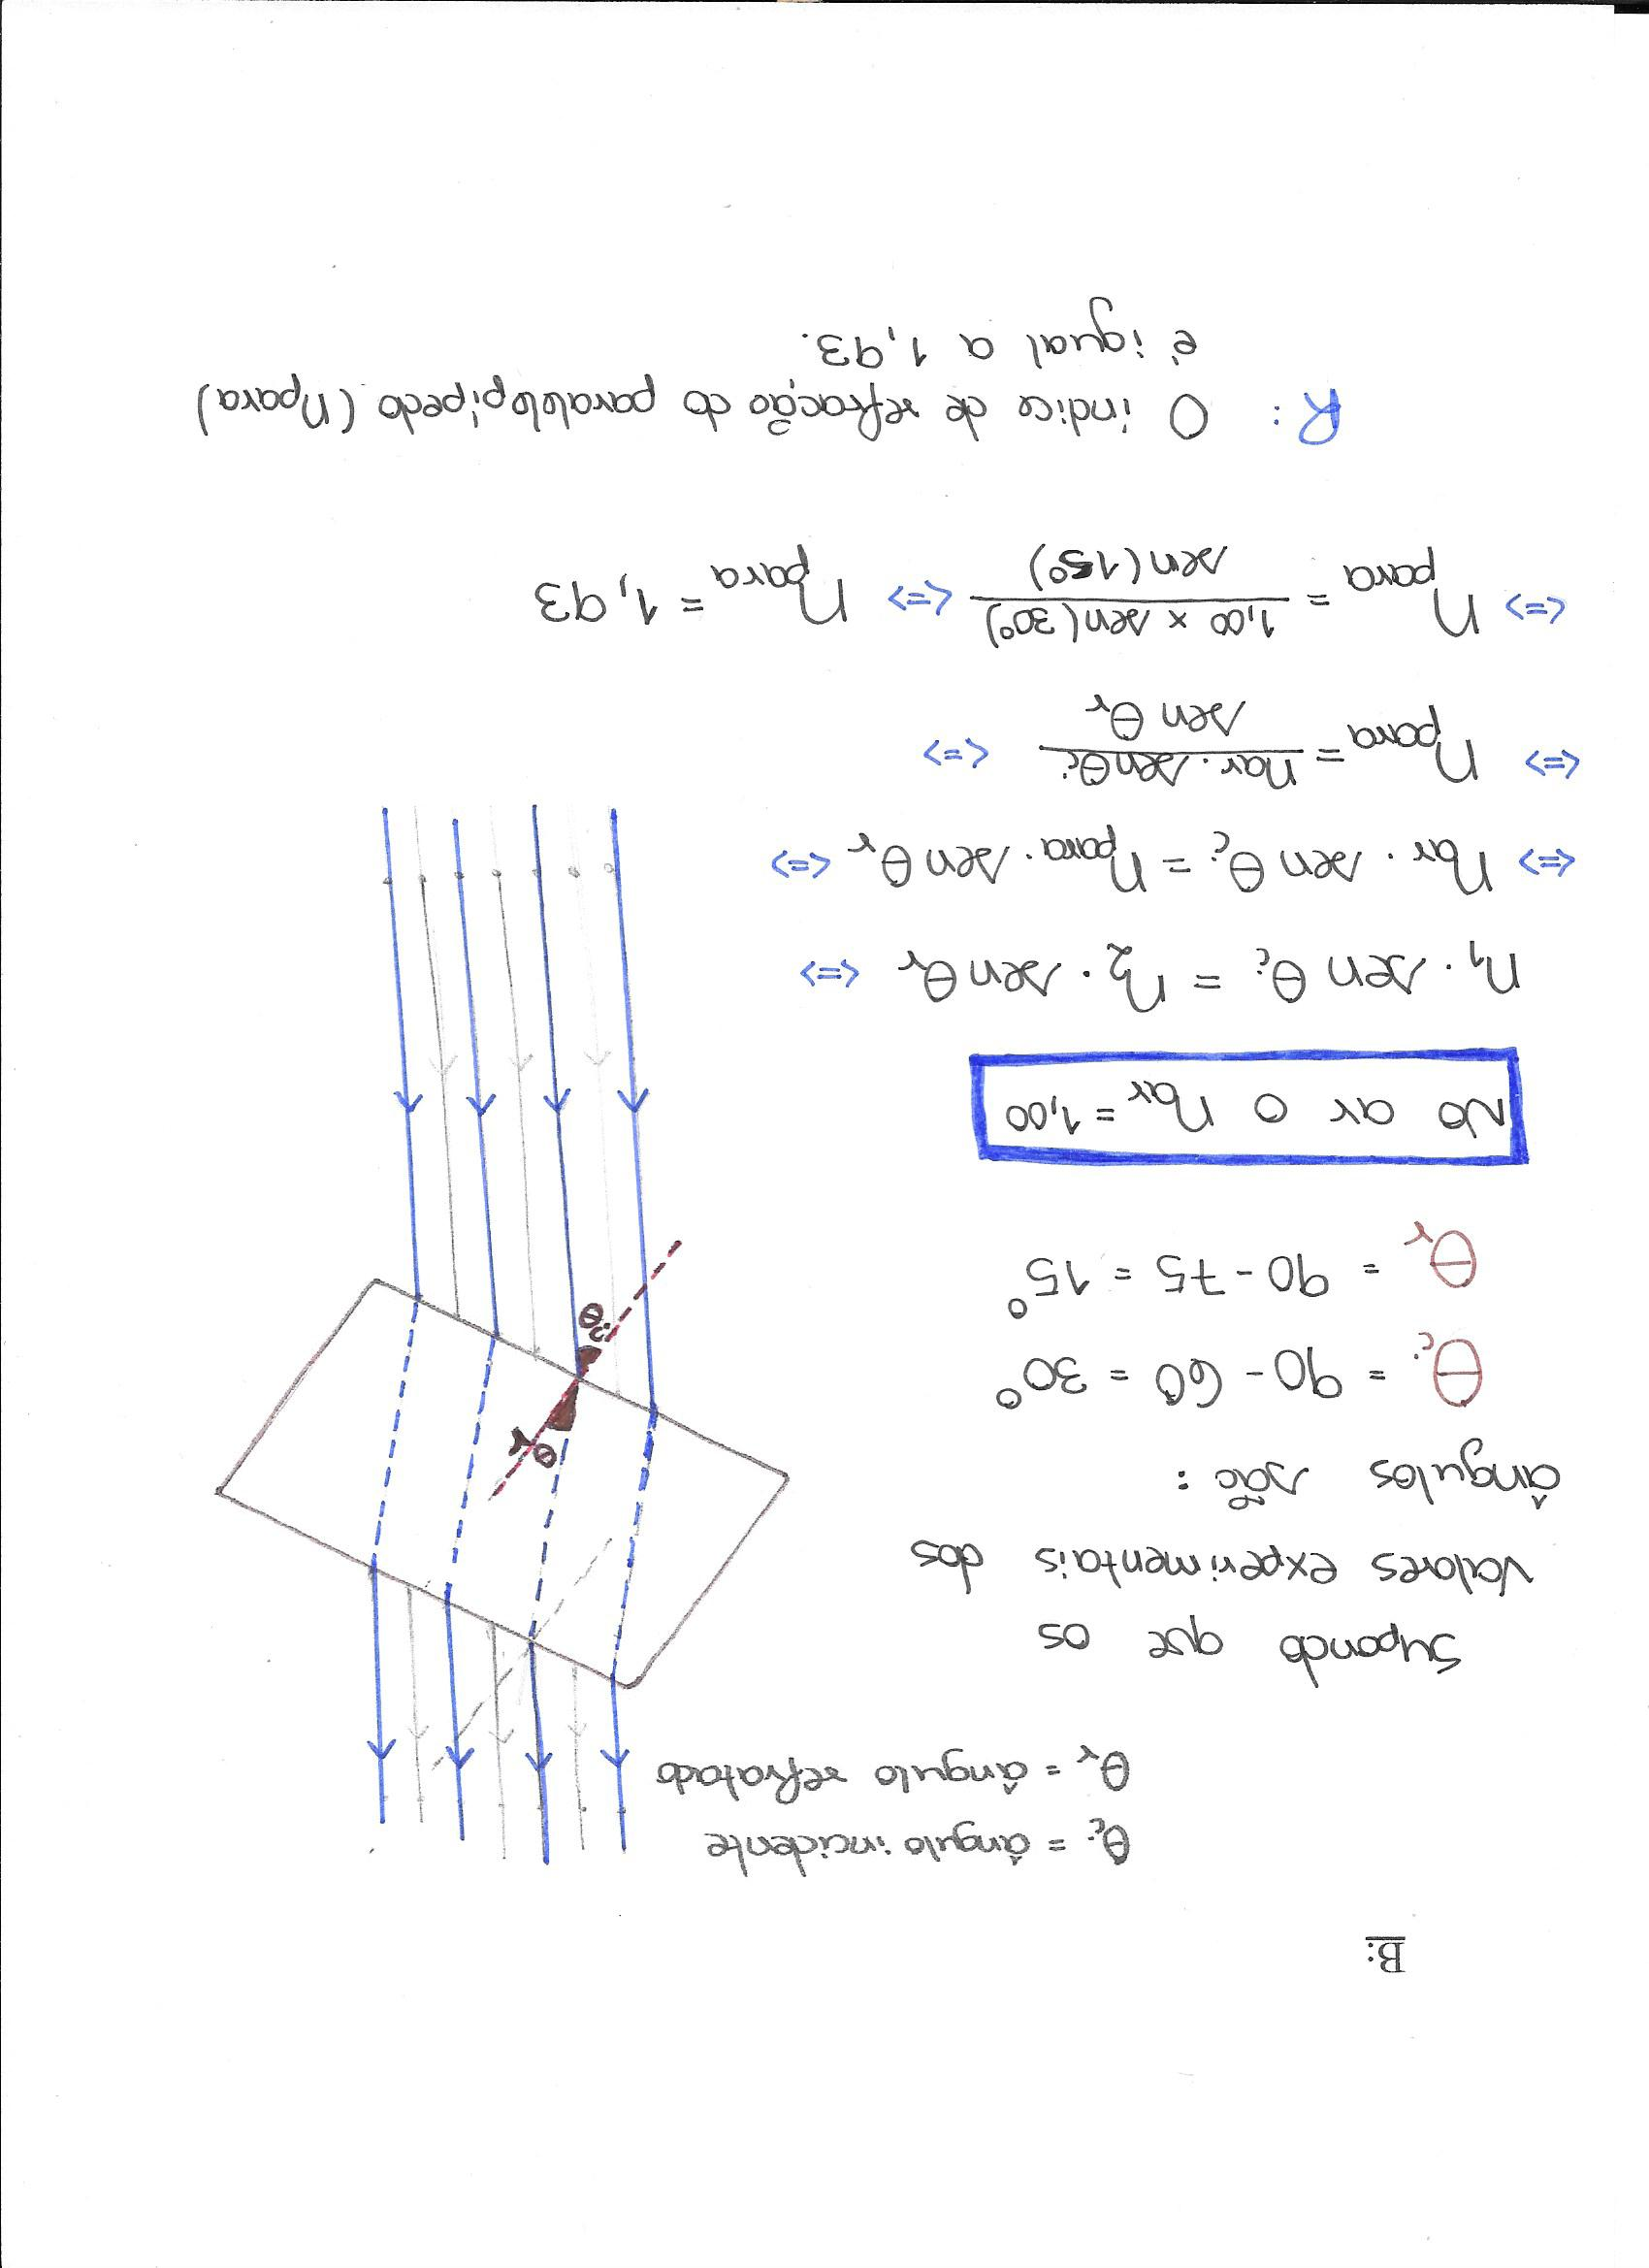 B:
θi = ângulo incidente
θr = ângulo refratado
Supondo que os
valores experimentais dos
ângulos são :
θi = 90 - 60 = 30°
θr = 90 - 75 = 15°
No ar o nar = 1,00
n1 . sen θi = n2 . sen θr <=>
<=> nar . sen θi = npara . sen θr <=>
<=> npara = nar . sen θi / sen θr <=>
<=> npara = 1,00 × sen (30°) / sen (15°) <=> npara = 1,93
R: O índice de refração do paralelepípedo (npara)
é igual a 1,93.
θr
θi